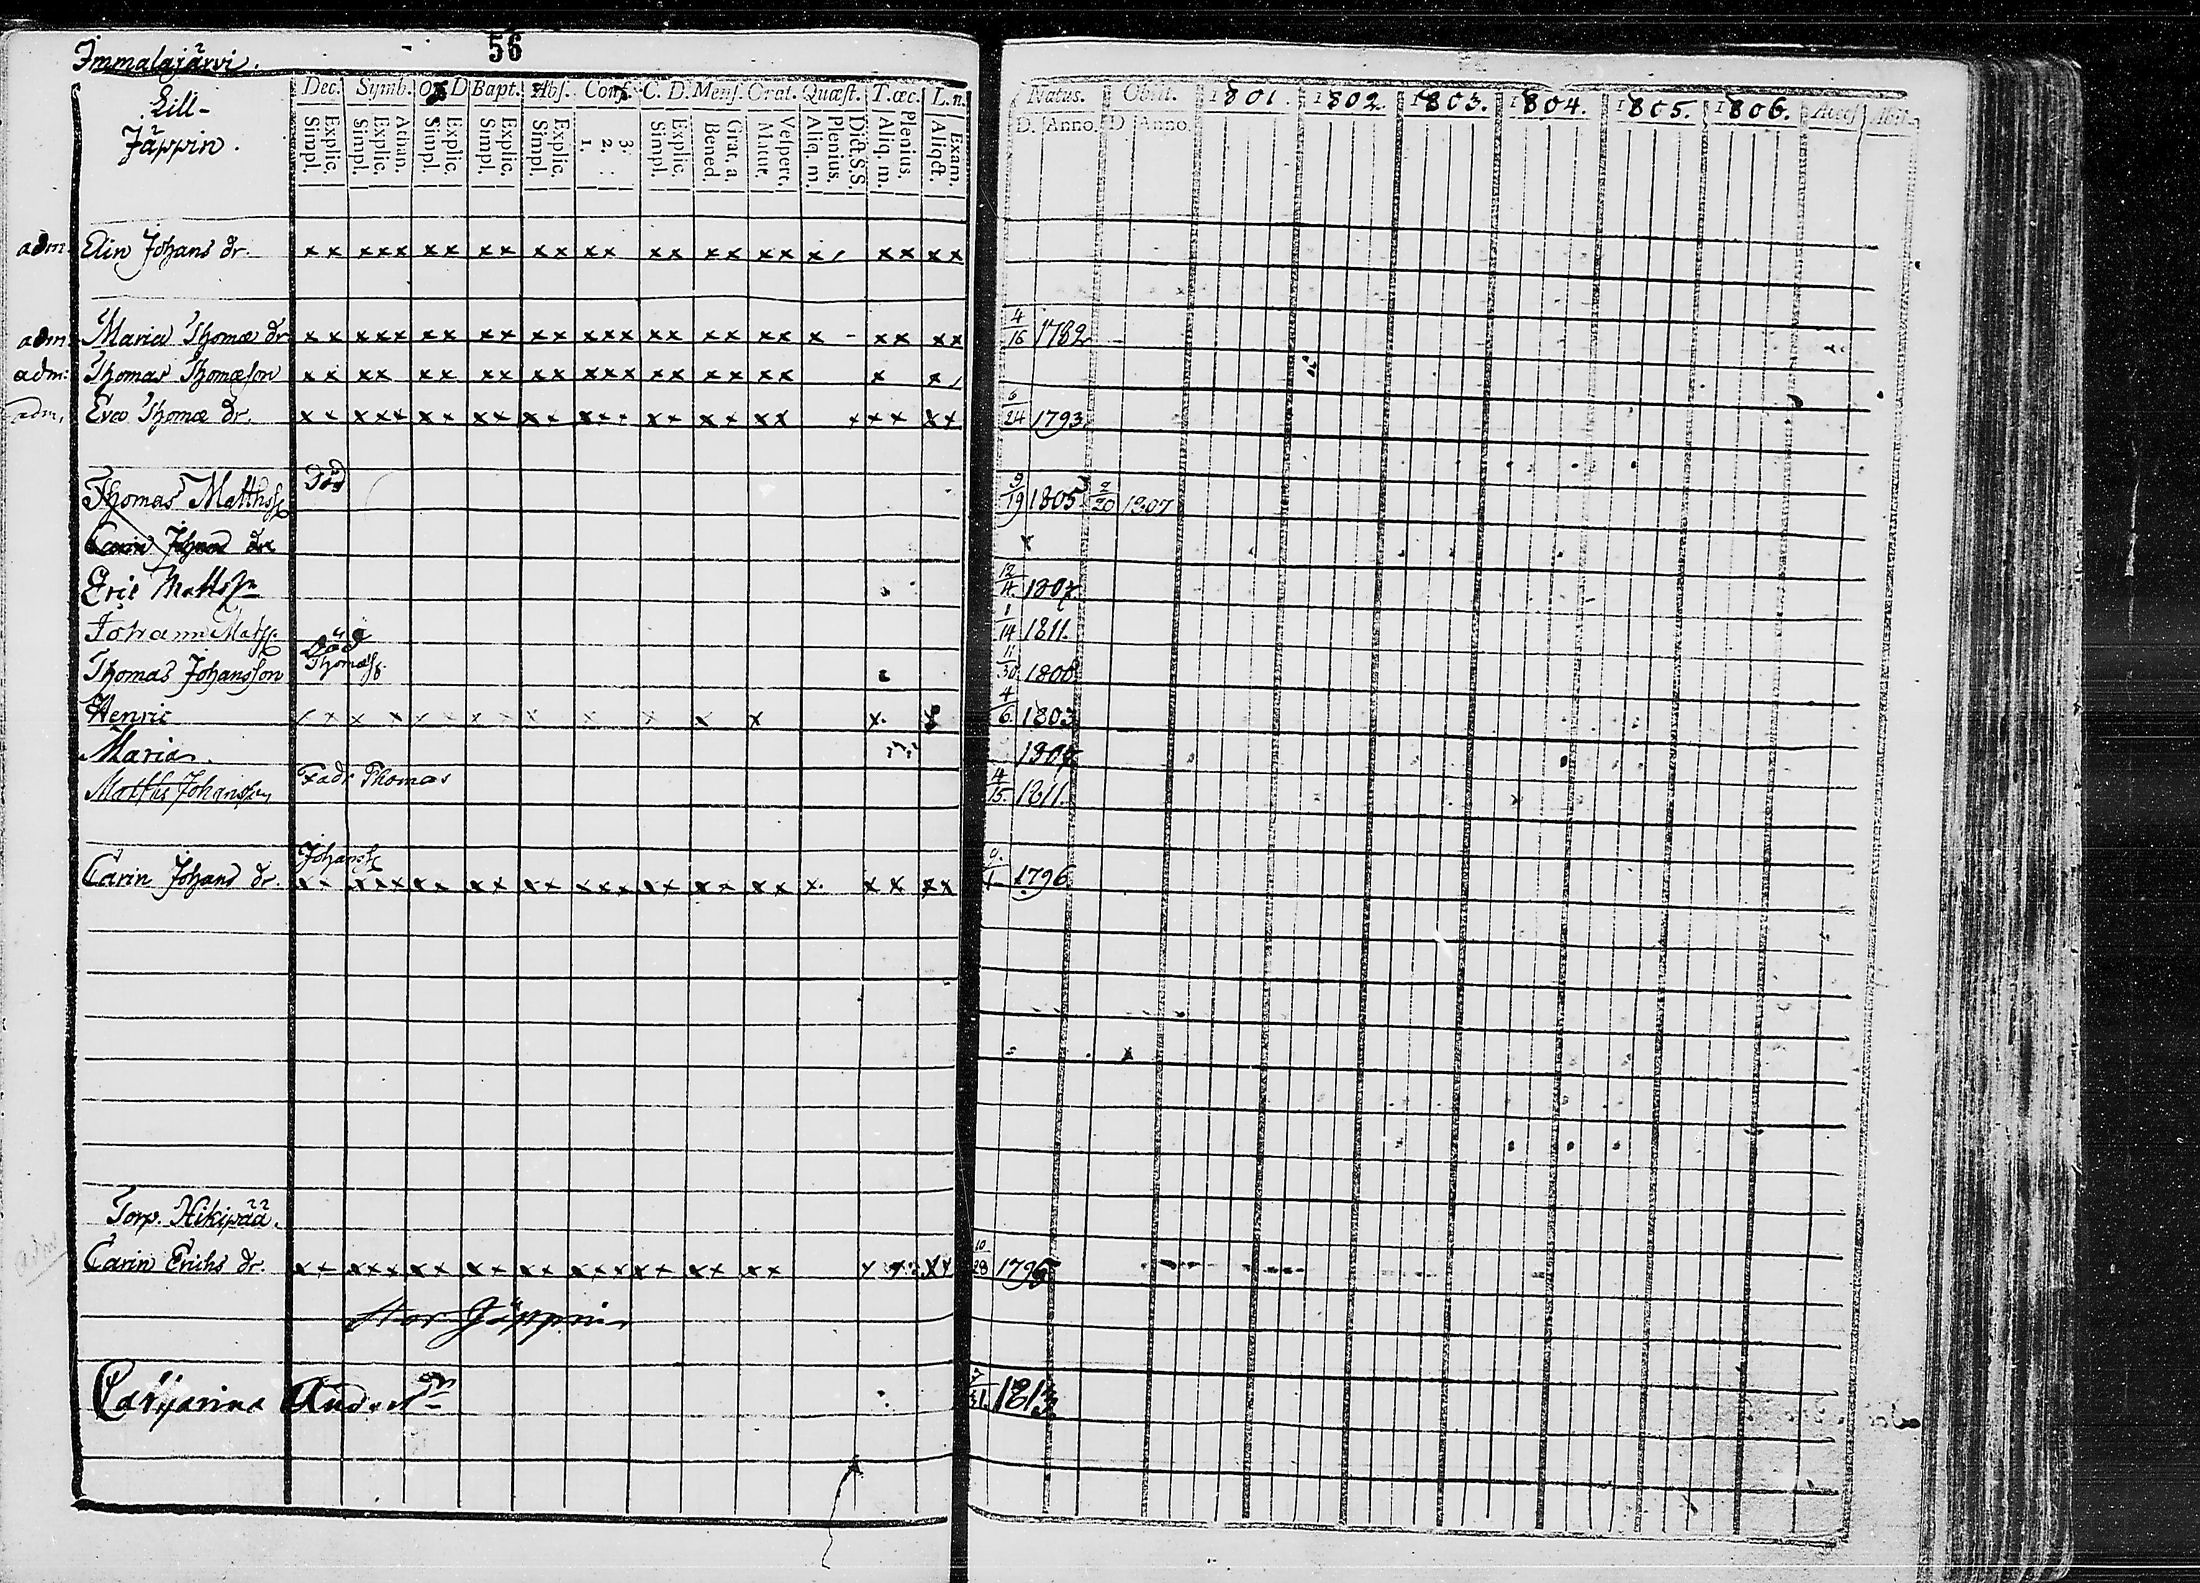 Immalajärvi.
56
Lill-
Jäppin.
Dec. Symb. O. D Bapt. Abſ. Conf. C. D. Menſ. Orat. Quæſt. T. œc. L. n.
Simpl. Explic. Simpl. Explic. Athan. Simpl. Explic. Simpl. Explic. Simpl. Explic. 1. 2. 3. Simpl. Explic. Bened. Grat. a. Matut. Veſpert. Aliq. m. Plenius. Dict. S.S. Aliq. m. Plenius. Aliqđt. Exam.
Natus. Obiit. 1801. 1802. 1803. 1804. 1805. 1806. Acceſ Abit
D. Anno. D Anno.
adm. Elin Johans dr. x x x x x x x x x x x x x x x x x x x x x x x x
adm Maria Thomæ dr x x x x x x x x x x x x x x x x x x x x x - x x x x 4/16 1782
adm: Thomas Thomæſon x x x x x x x x x x x x x x x x x x x x x
adm. Eva Thomæ dr. x x x x x x x x x x x x x x x x x x x x x x x x x 6/24 1793
Död
Thomas Matthſſ 9/19 1805 2/20 1807
Carin Johans dr
Eric Mattsſn 12/4 1807
Johan Matſſ. 1/14 1811.
Död
Thomas Johansſon Thomæſſ. 11/30 1800
Henric x x x x x x x x x x x x x x x 4/6 1803
Maria. 1807
Matths Johansſon Fadr Thomas 4/15. 1811.
Johansſ
Carin Johans dr. x x x x x x x x x x x x x x x x x x x x x. x x x x 1796
Torp. Hikipää.
adm Carin Erichs dr. x x x x x x x x x x x x x x x x x x x x x x x x 10/28 1795
Stor Jäppin
Catharina Anders dr 7/31. 1813